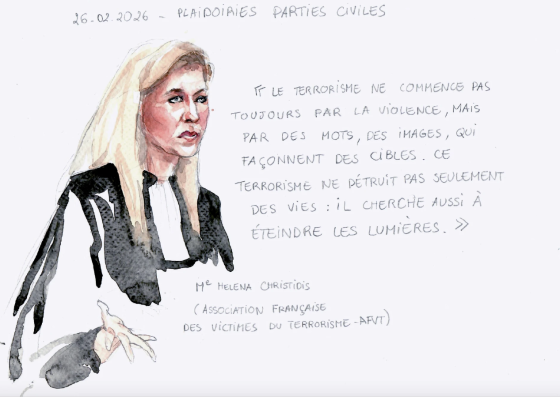 26.02.2026 - PLAIDOIRIES PARTIES CIVILES
« LE TERRORISME NE COMMENCE PAS
TOUJOURS PAR LA VIOLENCE, MAIS
PAR DES MOTS, DES IMAGES, QUI
FAÇONNENT DES CIBLES. CE
TERRORISME NE DÉTRUIT PAS SEULEMENT
DES VIES : IL CHERCHE AUSSI À
ÉTEINDRE LES LUMIÈRES. »
Me HELENA CHRISTIDIS
(ASSOCIATION FRANÇAISE
DES VICTIMES DU TERRORISME - AFVT)